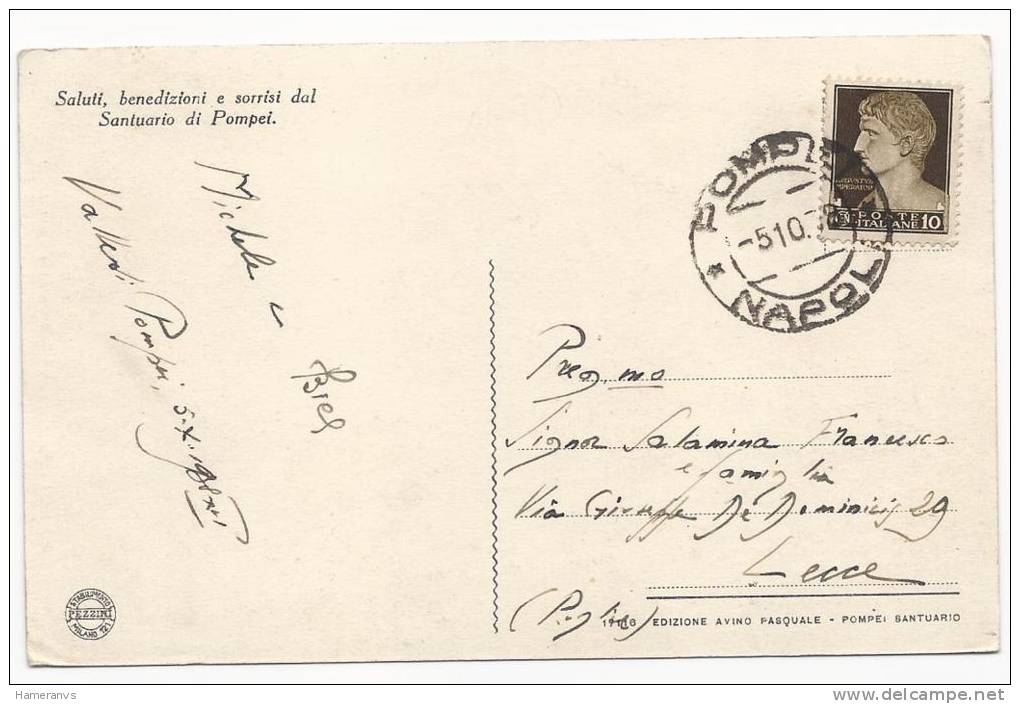 Saluti, benedizioni e sorrisi dal
Santuario di Pompei.
Michele e
Valle di Pompei, 5-X-
AVGVSTVS
IMPERATOR
POSTE
ITALIANE 10
POMPEI
-5 10.
* NAPOLI
Preg.mo
Signor Salamina Francesco
e famiglia
Via Giuseppe De Dominicis 29
Lecce
(Puglie)
EDIZIONE AVINO PASQUALE - POMPEI SANTUARIO
STABILIMENTO
PEZZINI
MILANO 121
Hameranvs
www.delcampe.net